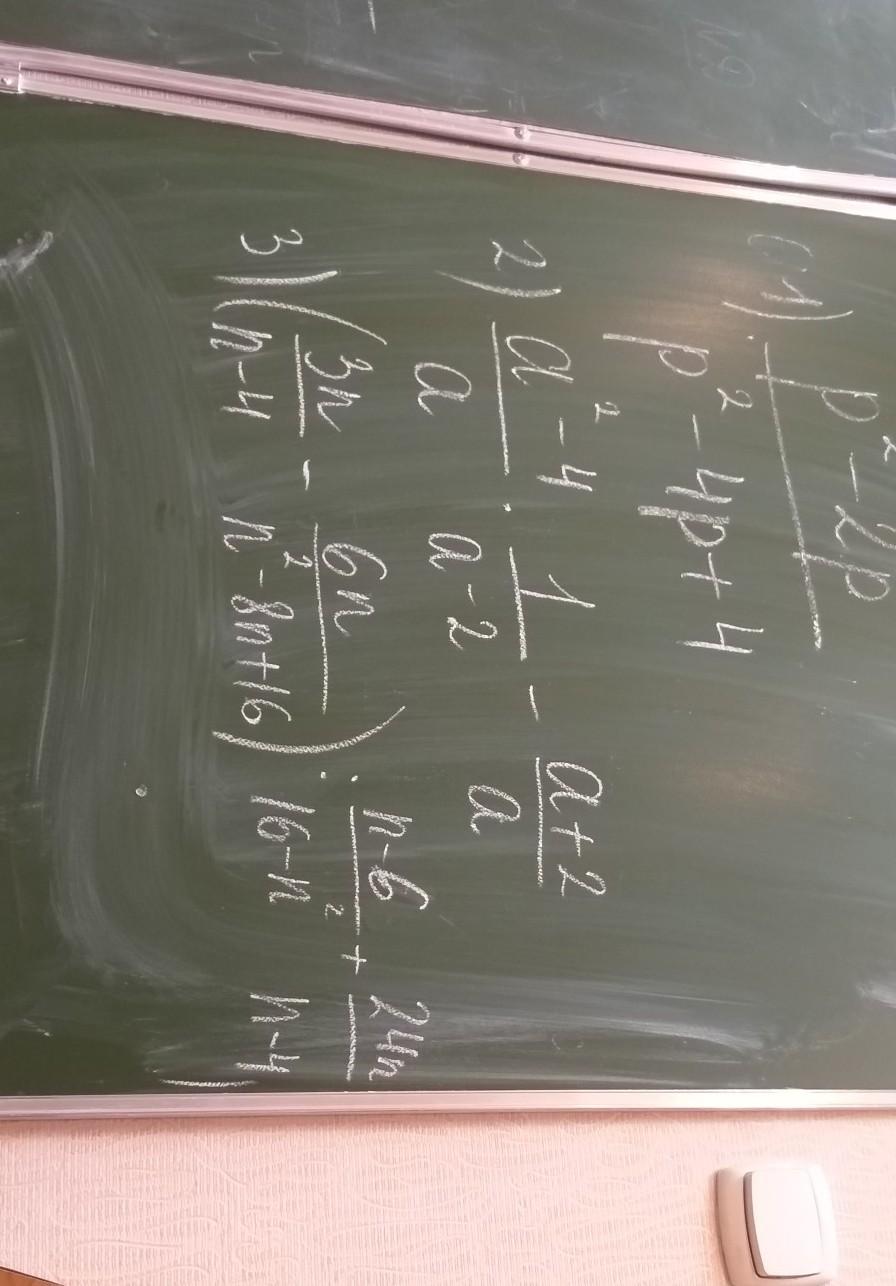 1) p² - 2p
p² - 4p + 4
2) a² - 4 / a · 1 / a - 2 - a + 2 / a
3) ( 3n / n - 4 - 6n / n² - 8n + 16 ) : n - 6 / 16 - n² + 24n / n - 4